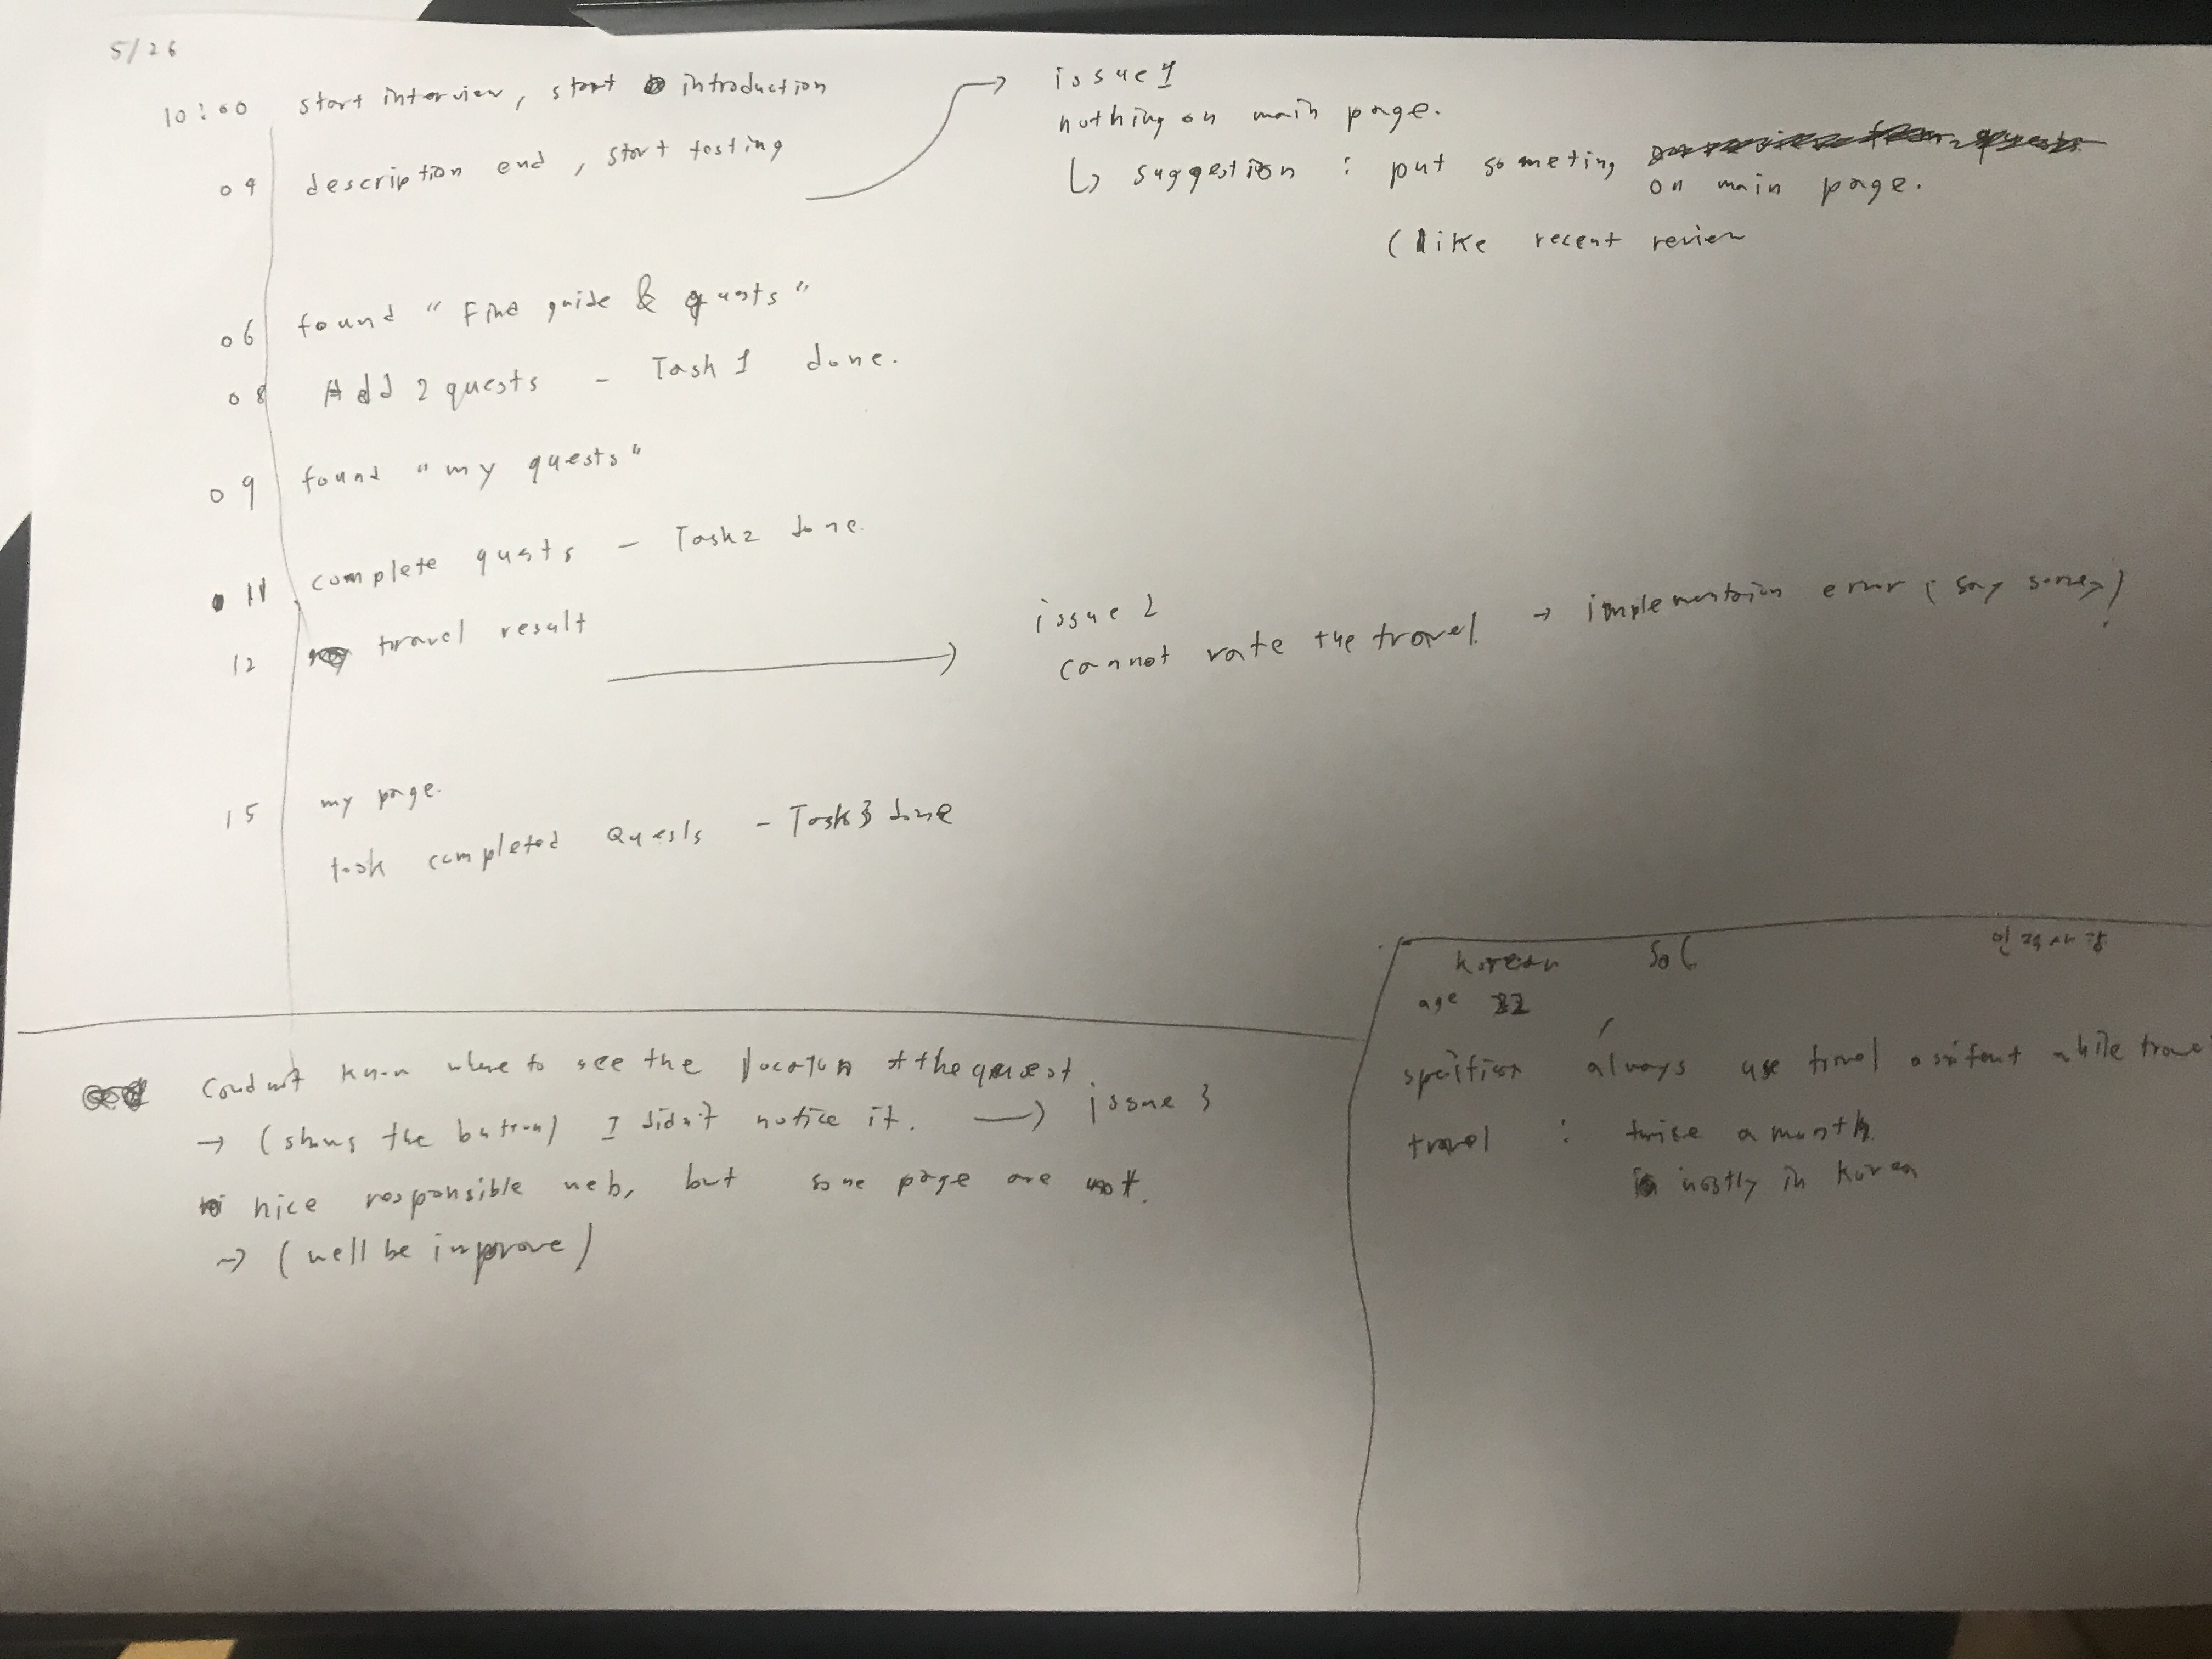 5/26
10:00 start interview, start introduction
04 description end, start testing
issue 1
nothing on main page.
↳ suggestion : put someting
on main page.
(like recent review
06 found "Find guide & quests"
08 Add 2 quests - Task 1 done.
09 found "my quests"
11 complete quests - Task 2 done.
12 travel result
issue 2
cannot rate the travel → implementation error (say sorry)
15 my page.
took completed Quests - Task 3 done
know where to see the location of the quest
→ (shows the button) I didn't notice it. → issue 3
nice responsible web, but some page are not.
→ (well be improve)
Korean SoC 인적사항
age 22
always use travel while trave
travel : twice a month
mostly in Korea